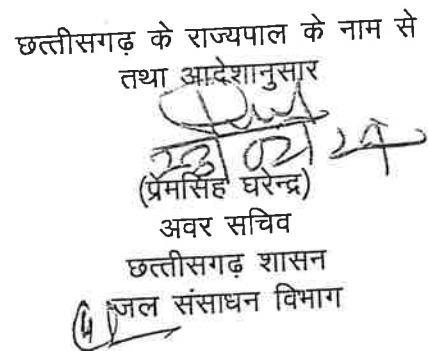 छत्तीसगढ़ के राज्यपाल के नाम से
तथा आदेशानुसार
(प्रेमसिंह घरेन्द्र)
अवर सचिव
छत्तीसगढ़ शासन
जल संसाधन विभाग